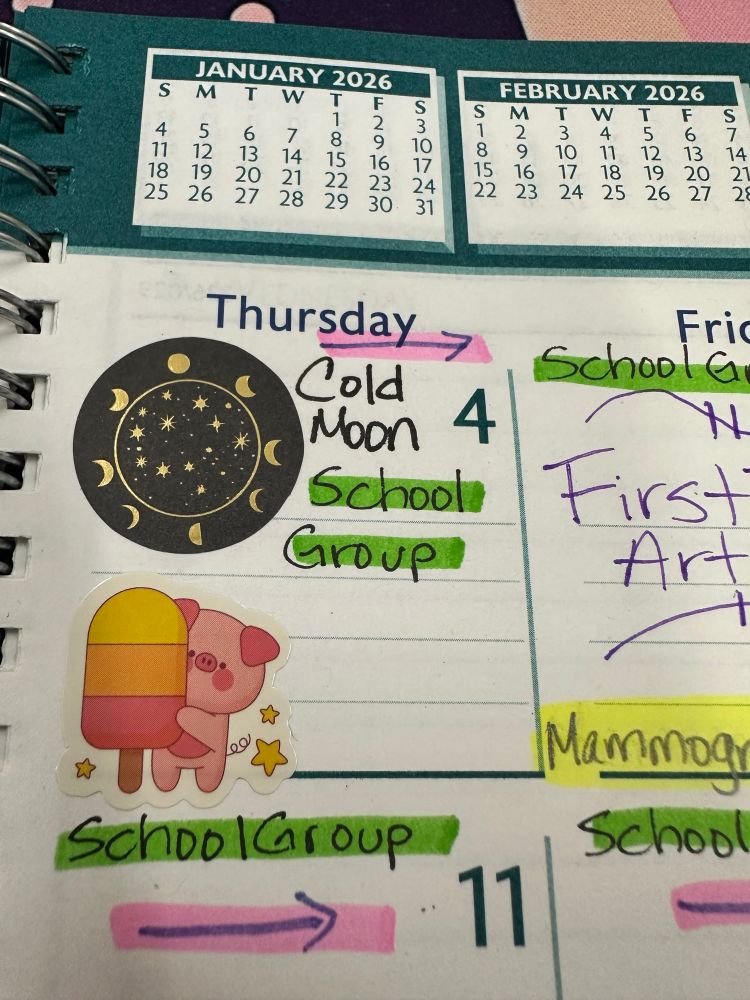 JANUARY 2026
S M T W T F S
1 2 3
4 5 6 7 8 9 10
11 12 13 14 15 16 17
18 19 20 21 22 23 24
25 26 27 28 29 30 31
FEBRUARY 2026
S M T W T F S
1 2 3 4 5 6 7
8 9 10 11 12 13 14
15 16 17 18 19 20 21
22 23 24 25 26 27 28
Thursday
Cold
Moon
4
School
Group
School Group
11
School
First
Art
School